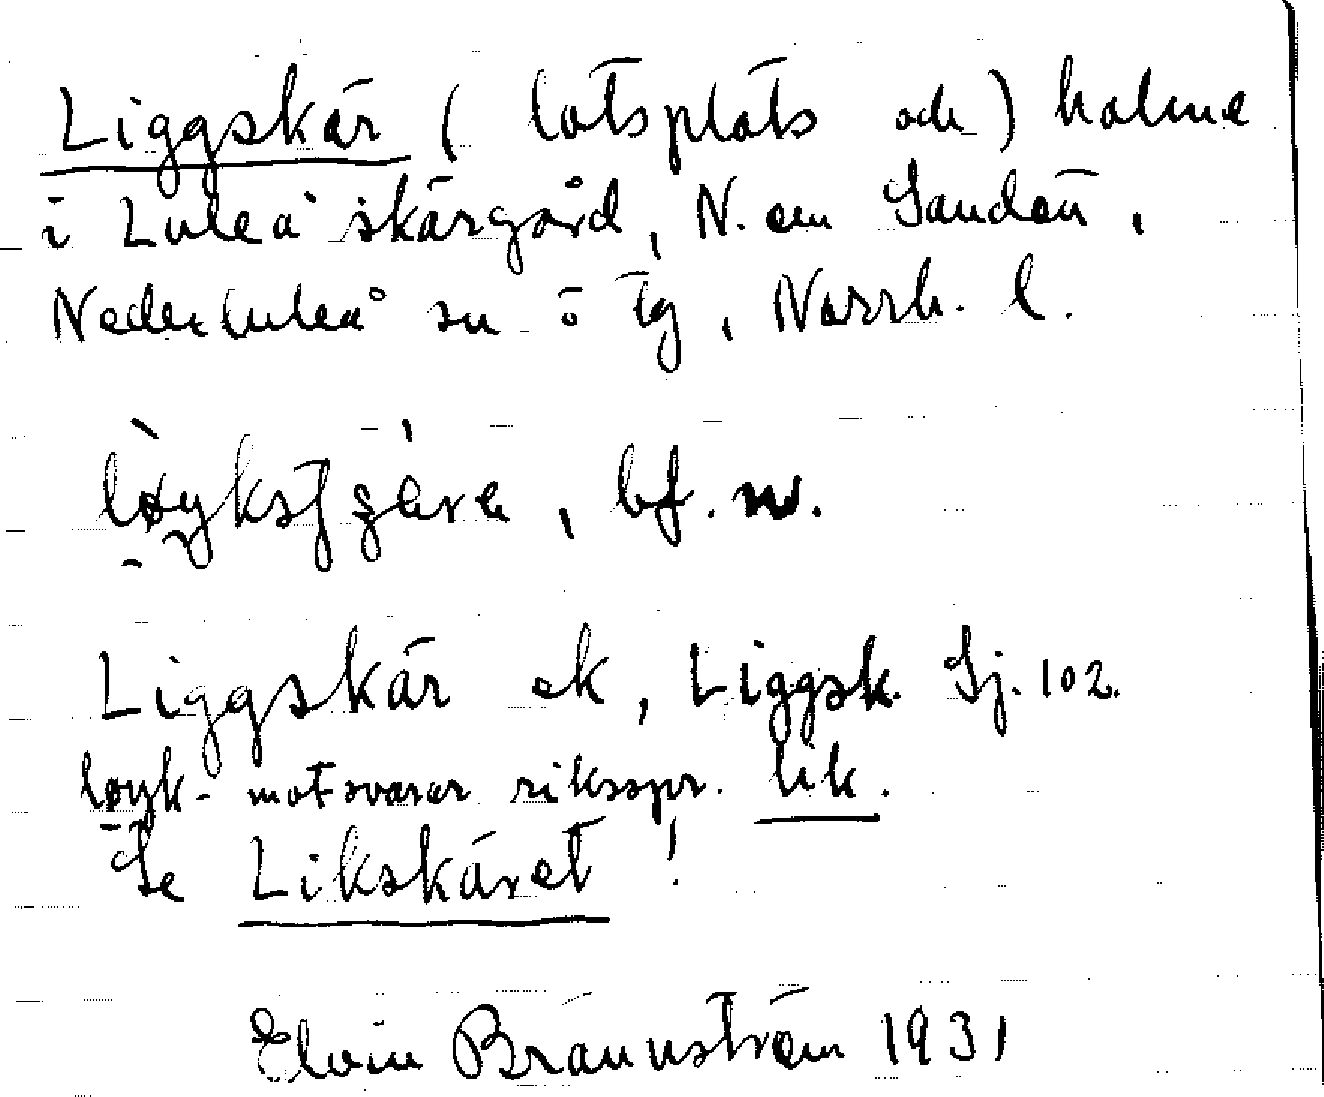 Liggskär (lotsplats och) holme
i Luleå skärgård, N. om Sandön,
Nederluleå sn o tg, Norrb. l.
bf. n.
Liggskär ek, Liggsk. Sj. 102.
løyk- motsvarar riksspr. lik.
Se Likskäret!
Elvin Brännström 1931